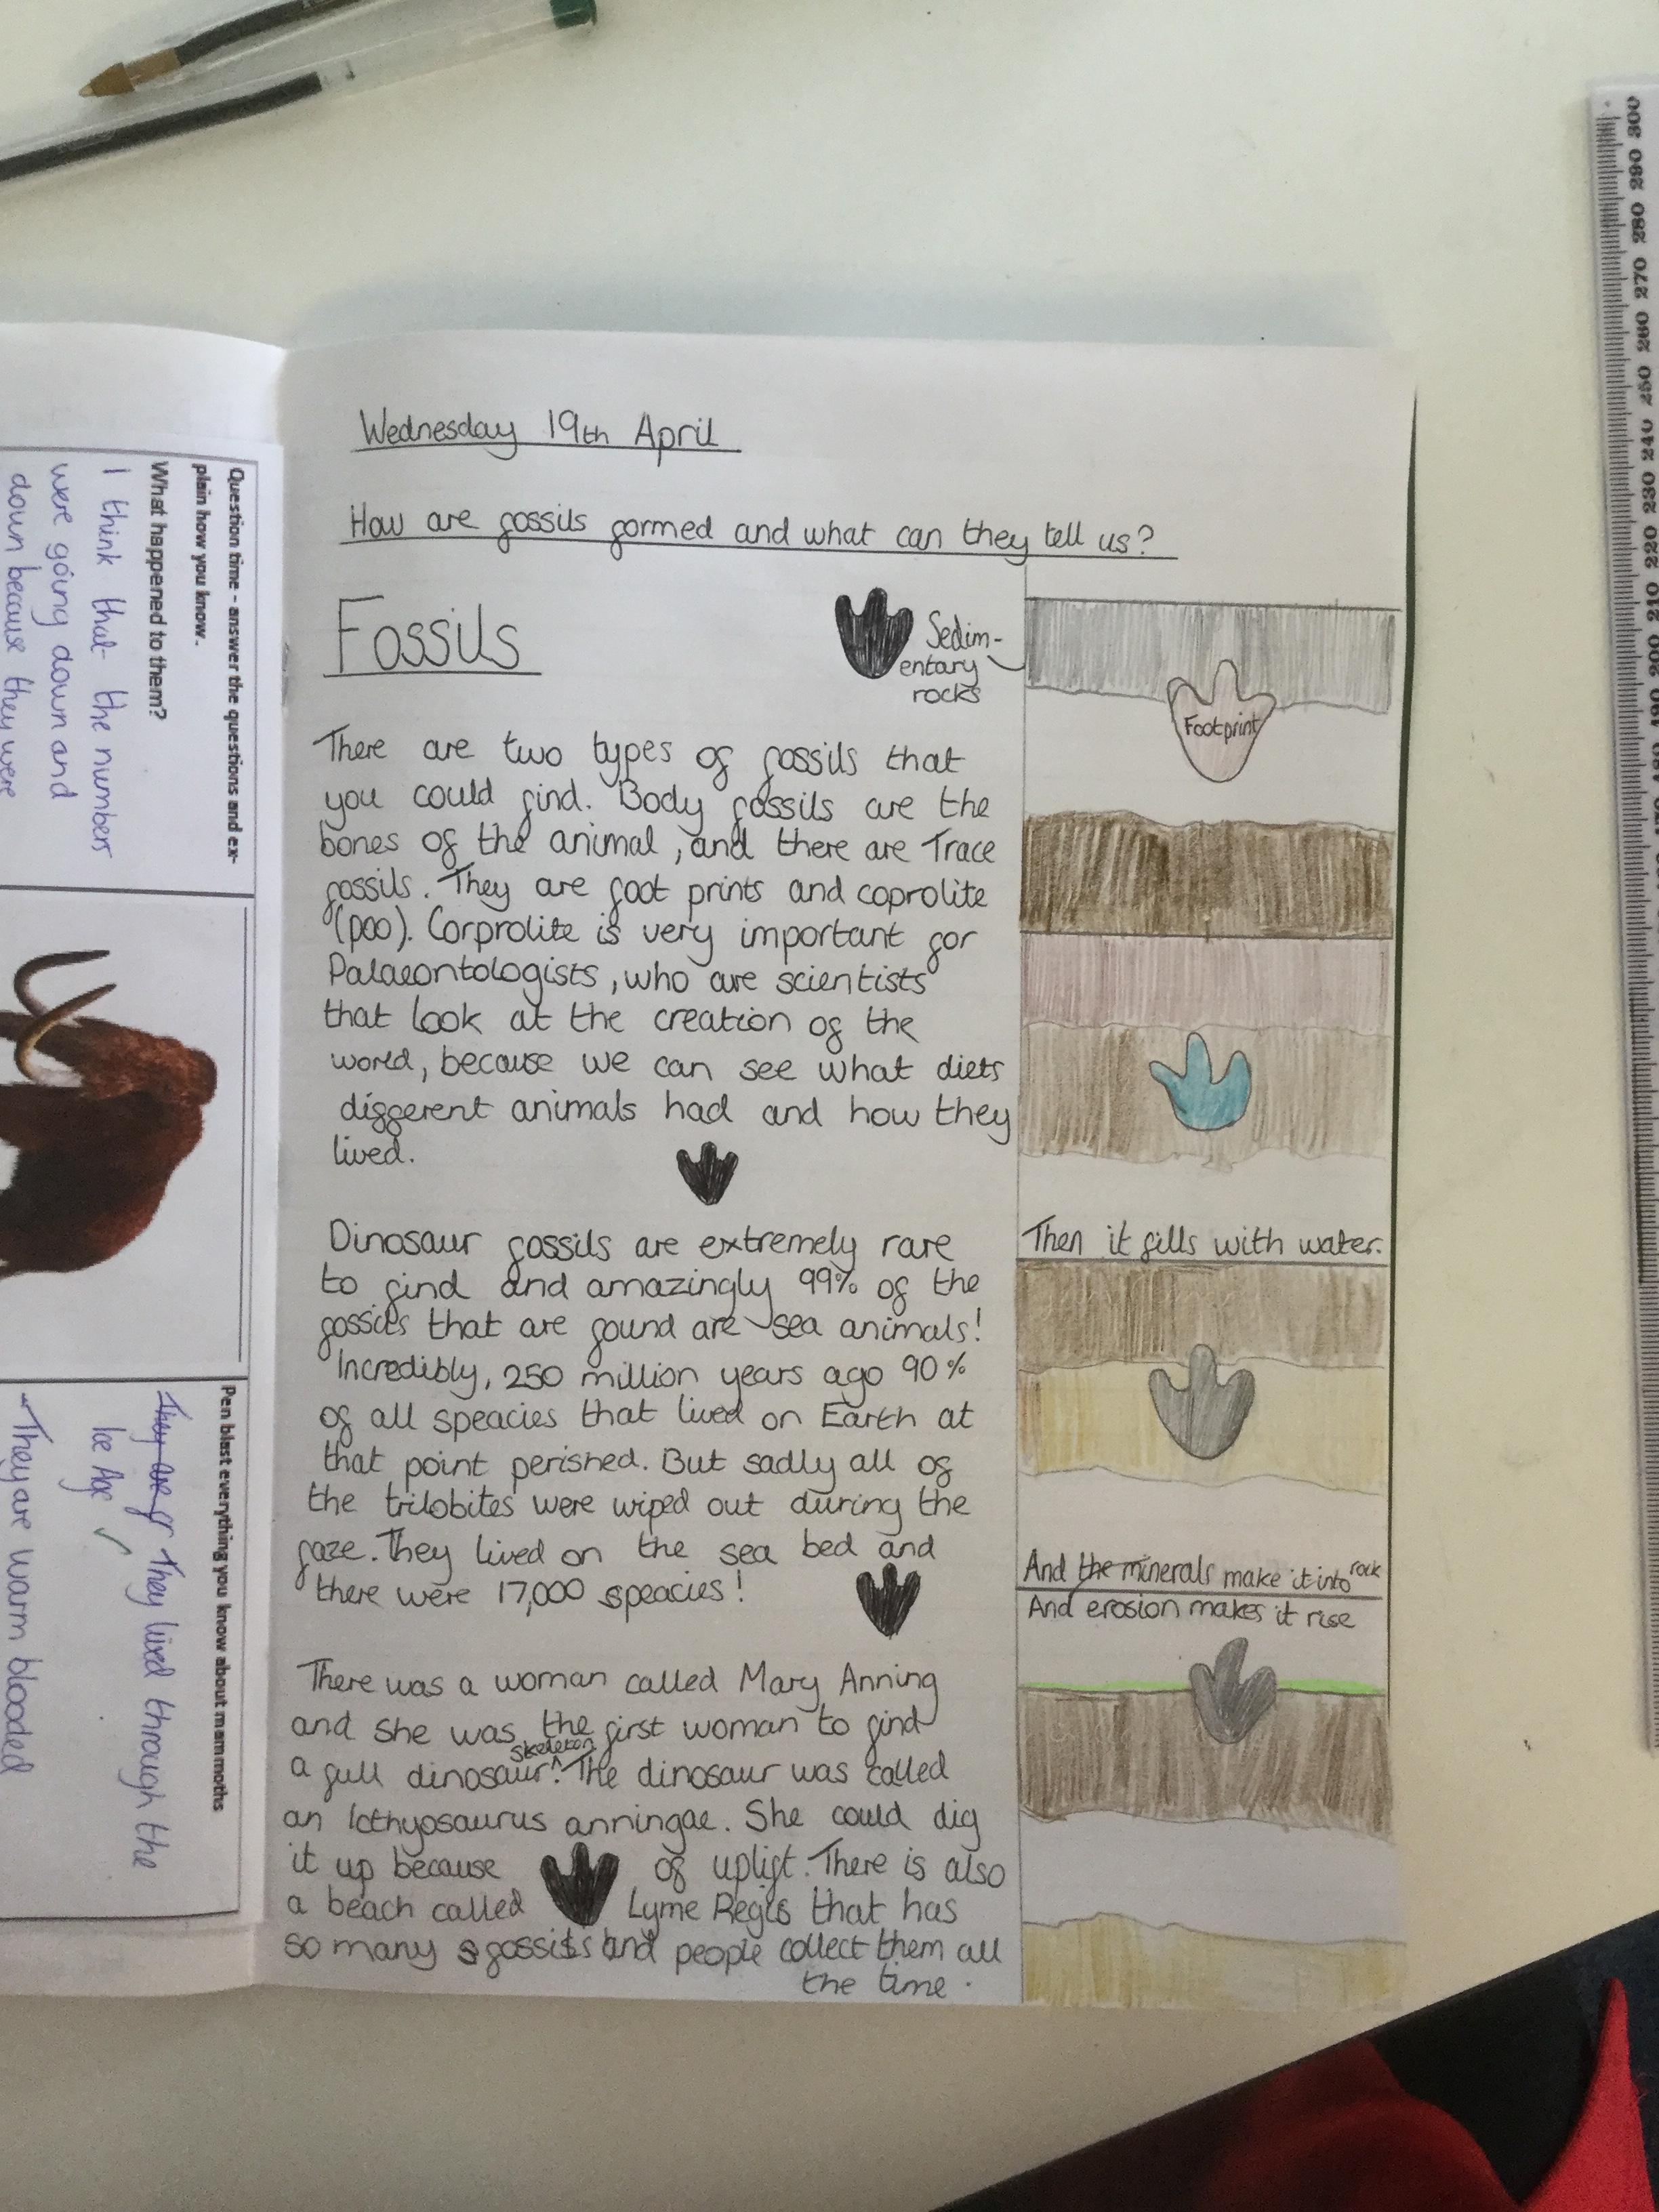 Wednesday 19th April
How are fossils formed and what can they tell us?
Fossils
There are two types of fossils that
you could find. Body fossils are the
bones of the animal, and there are Trace
fossils. They are foot prints and coprolite
(poo). Corprolite is very important for
Palaeontologists, who are scientists
that look at the creation of the
world, because we can see what diets
different animals had and how they
lived.
Dinosaur fossils are extremely rare
to find and amazingly 99% of the
fossils that are found are sea animals!
Incredibly, 250 million years ago 90%
of all speacies that lived on Earth at
that point perished. But sadly all of
the trilobites were wiped out during the
faze. They lived on the sea bed and
there were 17,000 speacies!
There was a woman called Mary Anning
and she was the first woman to find
a full dinosaur skeleton. The dinosaur was called
an Icthyosaurus anningae. She could dig
it up because of uplift. There is also
a beach called Lyme Regis that has
so many fossils and people collect them all
the time.
Sedim-
entary
rocks
Footprint
Then it fills with water.
And the minerals make it into rock
And erosion makes it rise
Question time - answer the questions and ex-
plain how you know.
What happened to them?
I think that the numbers
were going down and
down because they were
Pen blast everything you know about mammoths
They are gr They lived through the
Ice Age
- They are warm blooded
300 290 280 270 260 250 240 230 220 210 200 190 180